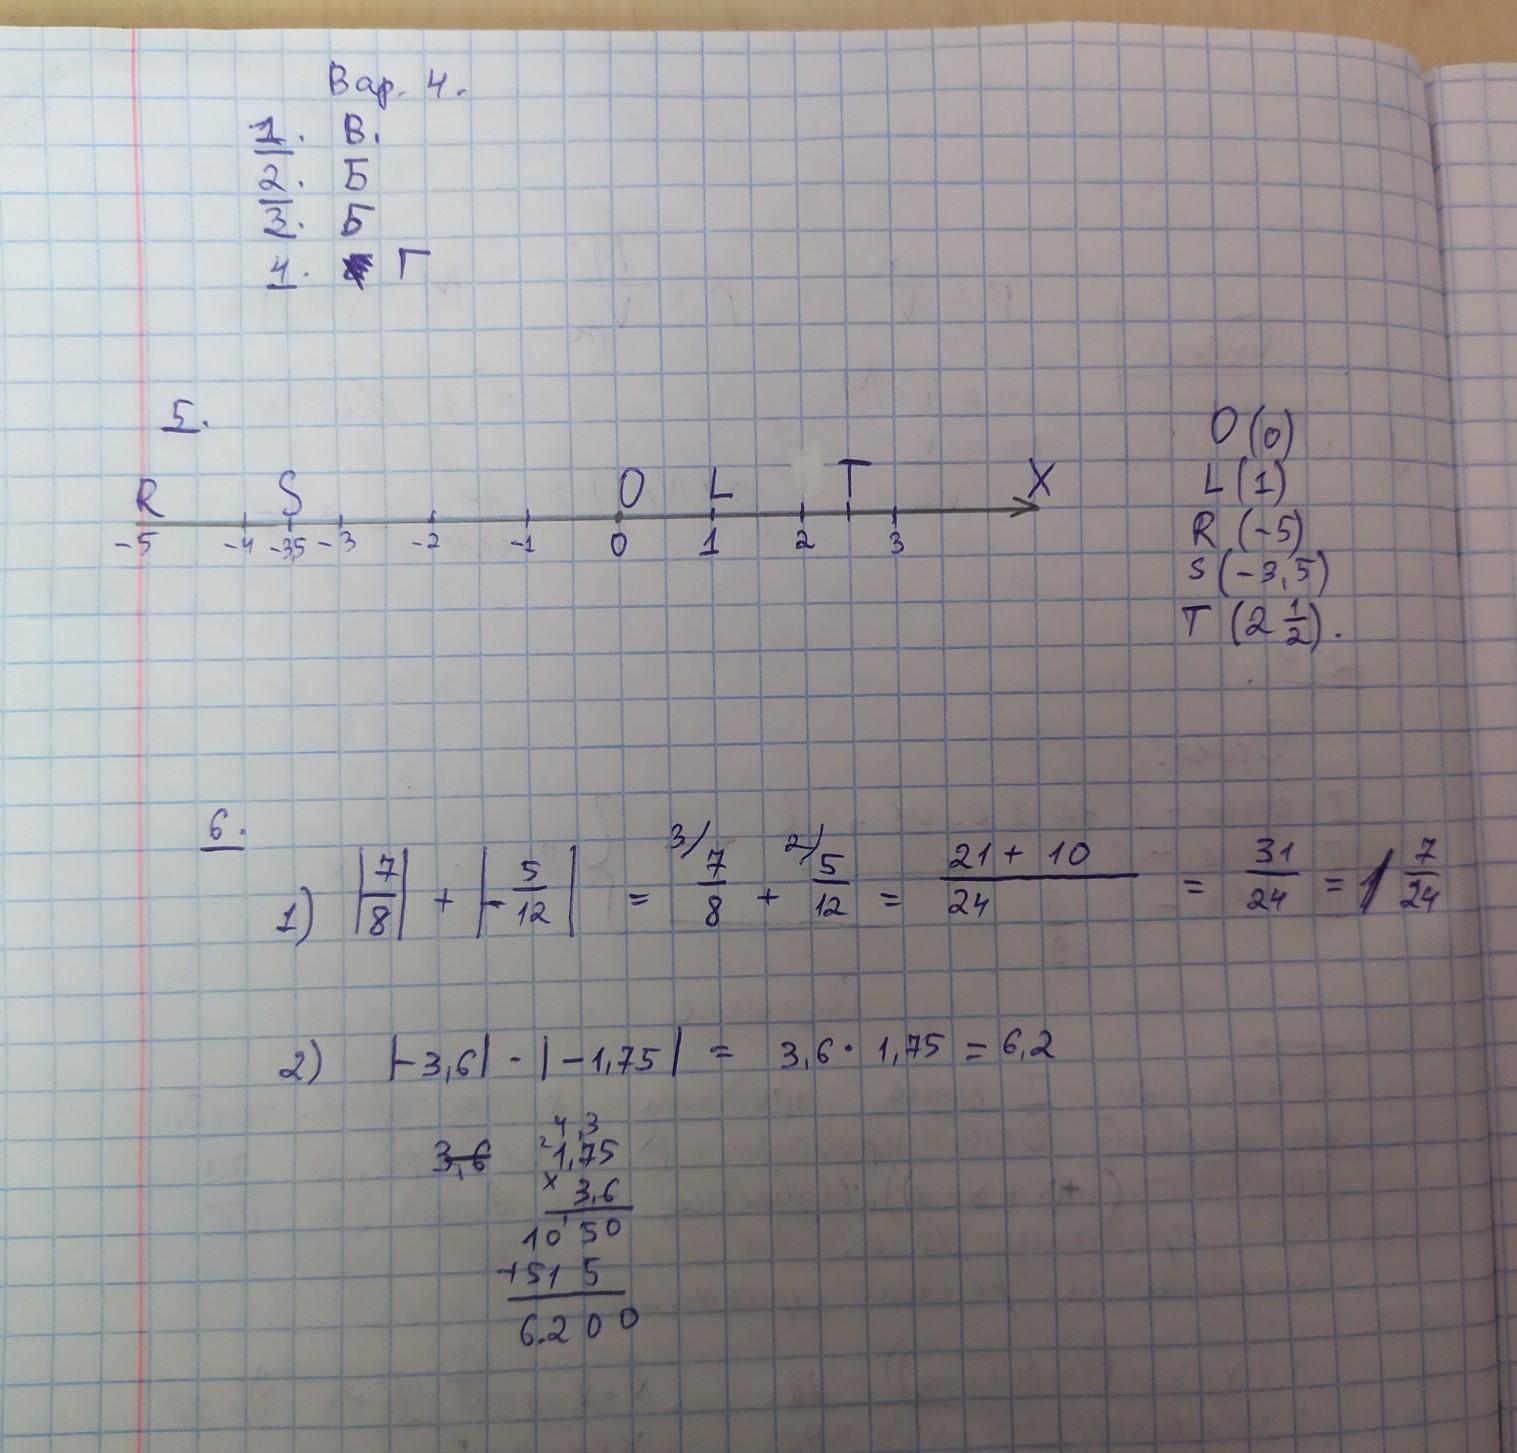 Вар. 4.
1. В.
2. Б
3. Б
4. Г
5.
R S O L T X
-5 -4 -3,5 -3 -2 -1 0 1 2 3
O (0)
L (1)
R (-5)
S (-3,5)
T (2 1/2).
6.
1) |7/8| + |-5/12| = 3/ 7/8 + 2/ 5/12 = 21 + 10 / 24 = 31/24 = 1 7/24
2) |-3,6| · |-1,75| = 3,6 · 1,75 = 6,2
4,3
3,6 2 1,75
× 3,6
10 1 50
+515
6.200